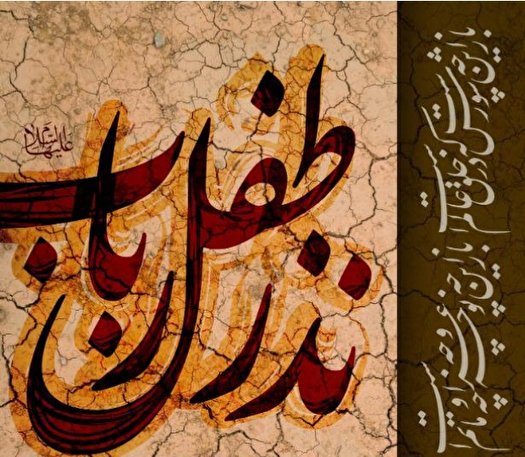 نذر طفل رباب
علیها السلام
باز این چه شورش است که در خلق عالم است
باز این چه نوحه و چه عزا و چه ماتم است